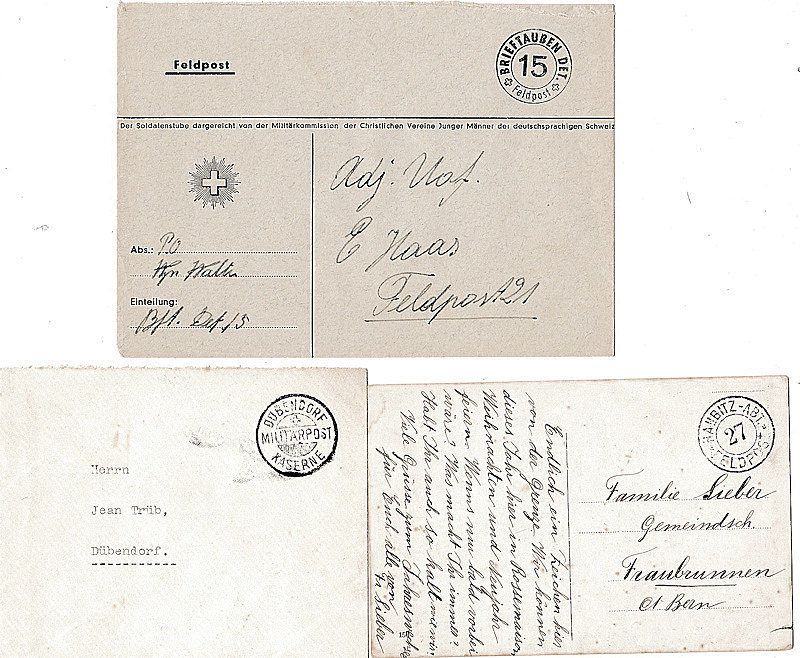 Feldpost
BRIEFTAUBEN DET.
15
Feldpost
Der Soldatenstube dargereicht von der Militärkommission der Christlichen Vereine Junger Männer der deutschsprachigen Schweiz
Abs.: PO
Walter
Einteilung:
Bft. Det. 15
Adj. Uof.
E Haas
Feldpost 21
DÜBENDORF
MILITÄRPOST
KASERNE
Herrn
Jean Trüb,
Dübendorf.
Endlich ein Zeichen hier
von der Grenze. Wir können
dieses Jahr hier in Rossemaison
Weihnachten und Neujahr
feiern. Wenns nur bald vorbei
wäre? Was macht Ihr immer?
Habt Ihr auch so kalt wie wir
Viele Grüsse zum Jahreswechsel
für Euch alle von
Sieber
HAUBITZ-ABT.
27
FELDPOST
Familie Sieber
Gemeindsch.
Fraubrunnen
Ct Bern